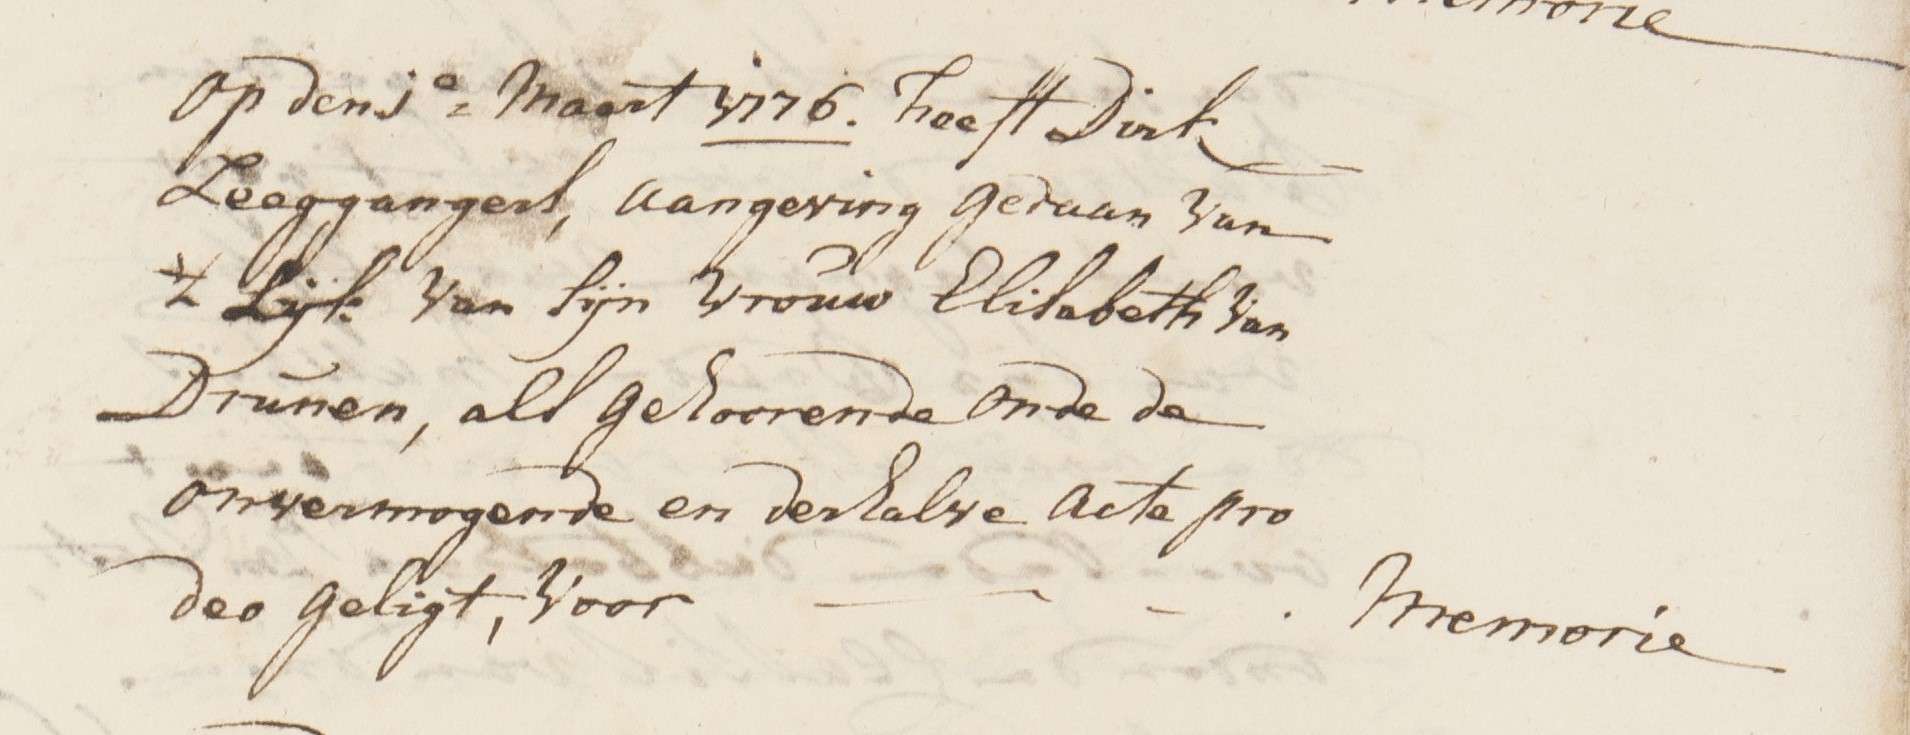 Memorie
Op den 1e= Maart 1776. heeft Dirk
Leeggangers, aangeving gedaan van
't Lijk van sijn vrouw Elisabeth van
Drunen, als gehoorende onde de
onvermogende en derhalve acte pro
deo geligt, voor — - . Memorie